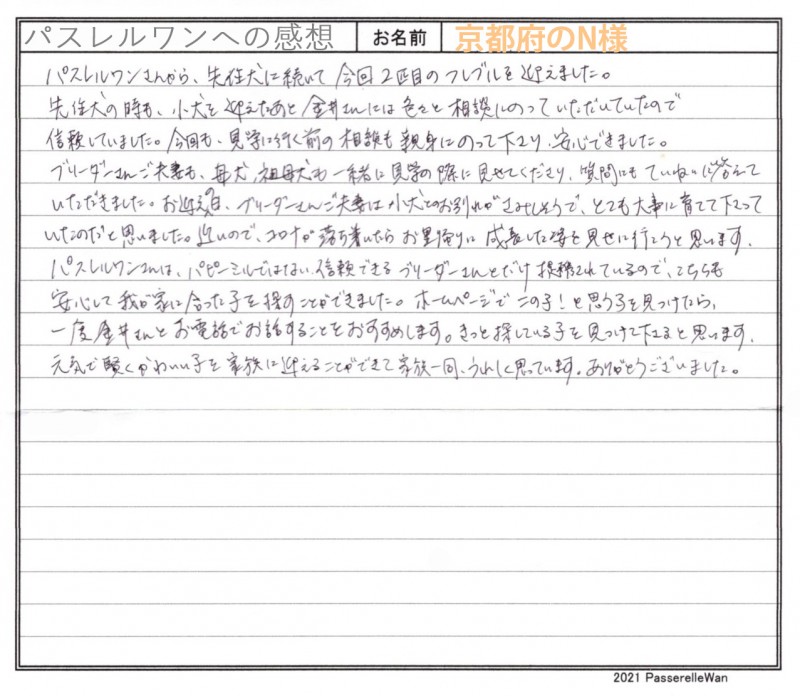 パスレルワンへの感想 お名前 京都府のN様
パスレルワンさんから、先住犬に続いて今回2匹目のフレブルを迎えました。
先住犬の時も、小犬を迎えたあと金井さんには色々と相談にのっていただいていたので
信頼していました。今回も、見学に行く前の相談も親身にのって下さり、安心できました。
ブリーダーさんご夫妻も、母犬、祖母犬も一緒に見学の際に見せてくださり、質問にもていねいに答えて
いただきました。お迎えの日、ブリーダーさんご夫妻は小犬とのお別れがさみしそうで、とても大事に育てて下さって
いたのだと思いました。近いので、コロナが落ち着いたらお里帰りに成長した姿を見せに行こうと思います。
パスレルワンさんは、パピーミルではない、信頼できるブリーダーさんとだけ提携されているので、こちらも
安心して我が家に合った子を探すことができました。ホームページでこの子!と思う子を見つけたら、
一度金井さんとお電話でお話することをおすすめします。きっと探している子を見つけて下さると思います。
元気で賢くかわいい子を家族に迎えることができて家族一同、うれしく思っています。ありがとうございました。
2021 PasserelleWan